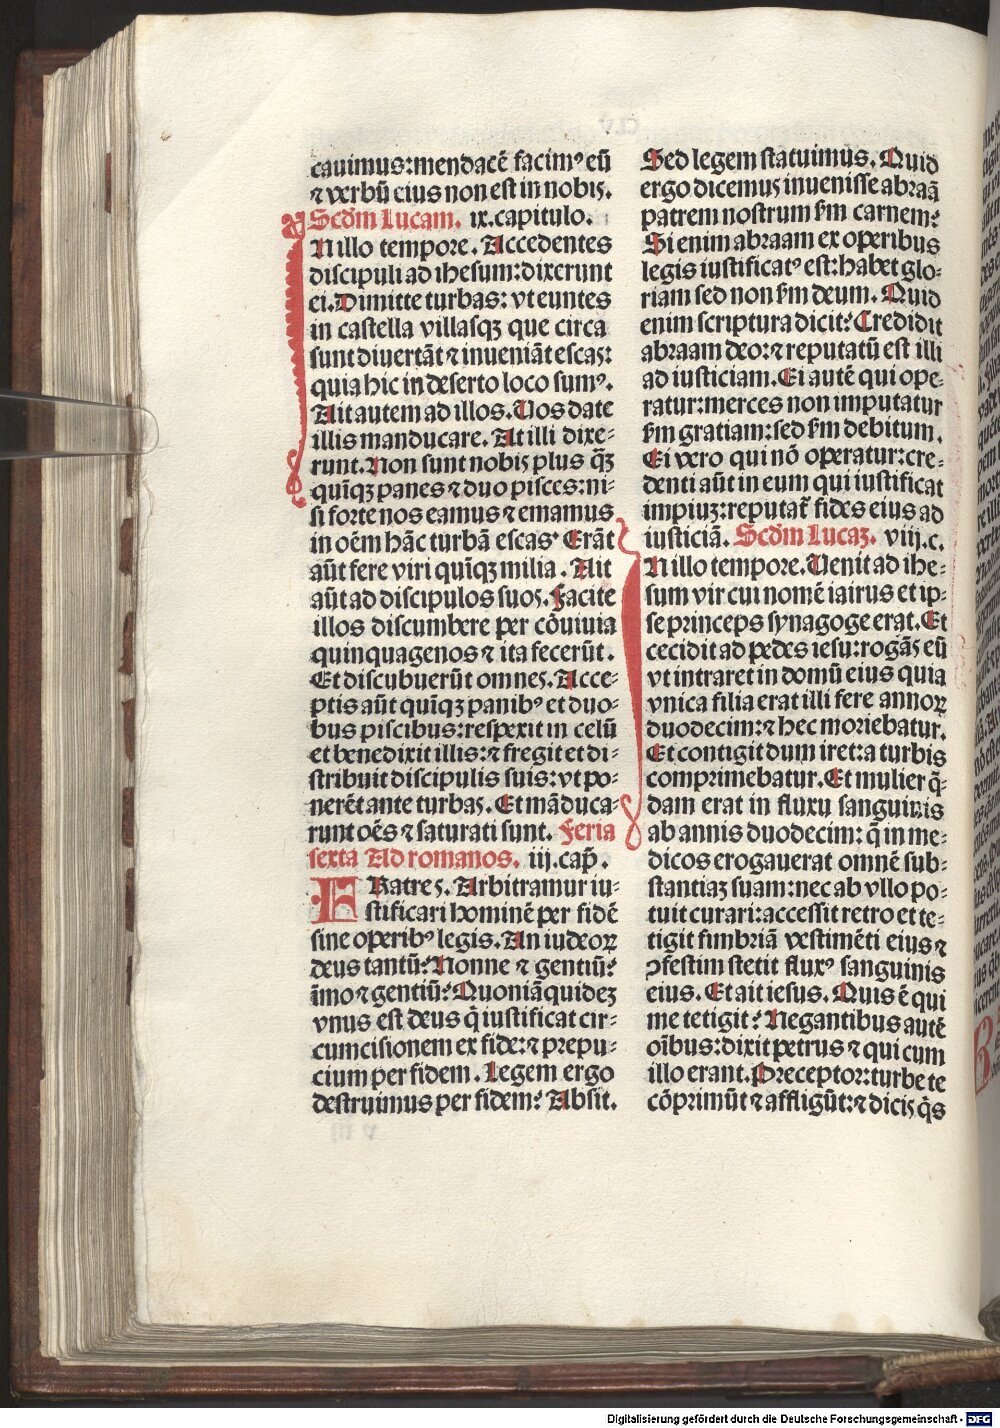 cauimus:mendacē facimꝰ eū
⁊ verbū eius non est in nobis.
Scd̄m Lucam. ix.capitulo.
INillo tempore. Accedentes
discipuli ad ihesum:dixerunt
ei. Dimitte turbas: vt euntes
in castella villasqꝫ que circa
sunt diuertāt ⁊ inueniāt escas:
quia hic in deserto loco sumꝰ.
Ait autem ad illos. Uos date
illis manducare. At illi dixe-
runt. Non sunt nobis plus q̄ꝫ
quīqꝫ panes ⁊ duo pisces: ni-
si forte nos eamus ⁊ emamus
in oēm hāc turbā escas. Erāt
aūt fere viri quīqꝫ milia. Ait
aūt ad discipulos suos. Facite
illos discumbere per cōuiuia
quinquagenos ⁊ ita fecerūt.
Et discubuerūt omnes. Acce-
ptis aūt quīqꝫ panibꝰ et duo-
bus piscibus: respexit in celū
et benedixit illis:⁊ fregit et di-
stribuit discipulis suis: vt po-
nerēt ante turbas. Et māduca-
runt oēs ⁊ saturati sunt. Feria
sexta Ad romanos. iij.cap̄.
FRatres. Arbitramur iu-
stificari hominē per fidē
sine operibꝰ legis. An iudeoꝝ
deus tantū: Nonne ⁊ gentiū?
īmo ⁊ gentiū? Quoniā quideꝫ
vnus est deus q̄ iustificat cir-
cumcisionem ex fide:⁊ prepu-
cium per fidem. Legem ergo
destruimus per fidem? Absit.
Sed legem statuimus. Quid
ergo dicemus inuenisse abraā
patrem nostrum sm̄ carnem?
Si enim abraam ex operibus
legis iustificatꝰ est: habet glo-
riam sed non sm̄ deum. Quid
enim scriptura dicit? Credidit
abraam deo:⁊ reputatū est illi
ad iusticiam. Ei autē qui ope-
ratur: merces non imputatur
sm̄ gratiam: sed sm̄ debitum.
Ei vero qui nō operatur: cre-
denti aūt in eum qui iustificat
impiuꝫ: reputat̄ fides eius ad
iusticiā. Scd̄m Lucaꝫ. viij.c.
INillo tempore. Uenit ad ihe-
sum vir cui nomē iairus et ip-
se princeps synagoge erat. Et
cecidit ad pedes iesu: rogās eū
vt intraret in domū eius quia
vnica filia erat illi fere annoꝝ
duodecim:⁊ hec moriebatur.
Et contigit dum iret: a turbis
comprimebatur. Et mulier q̄-
dam erat in fluxu sanguinis
ab annis duodecim: q̄ in me-
dicos erogauerat omnē sub-
stantiaꝫ suam: nec ab vllo po-
tuit curari: accessit retro et te-
tigit fimbriā vestimēti eius ⁊
ꝯfestim stetit fluxꝰ sanguinis
eius. Et ait iesus. Quis ē qui
me tetigit? Negantibus autē
oībus: dixit petrus ⁊ qui cum
illo erant. Preceptor: turbe te
cōprimūt ⁊ affligūt:⁊ dicis q̄s
Digitalisierung gefördert durch die Deutsche Forschungsgemeinschaft - DFG